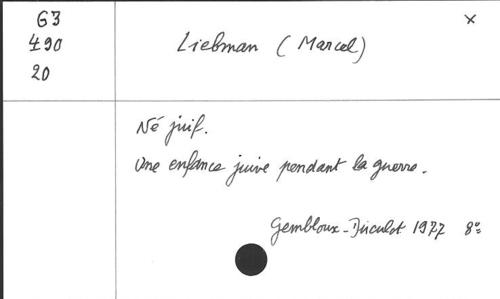 G3
490
20
Liebman (Marcel)
x
Né juif.
Une enfance juive pendant la guerre.
Gembloux-Duculot 1977 8º